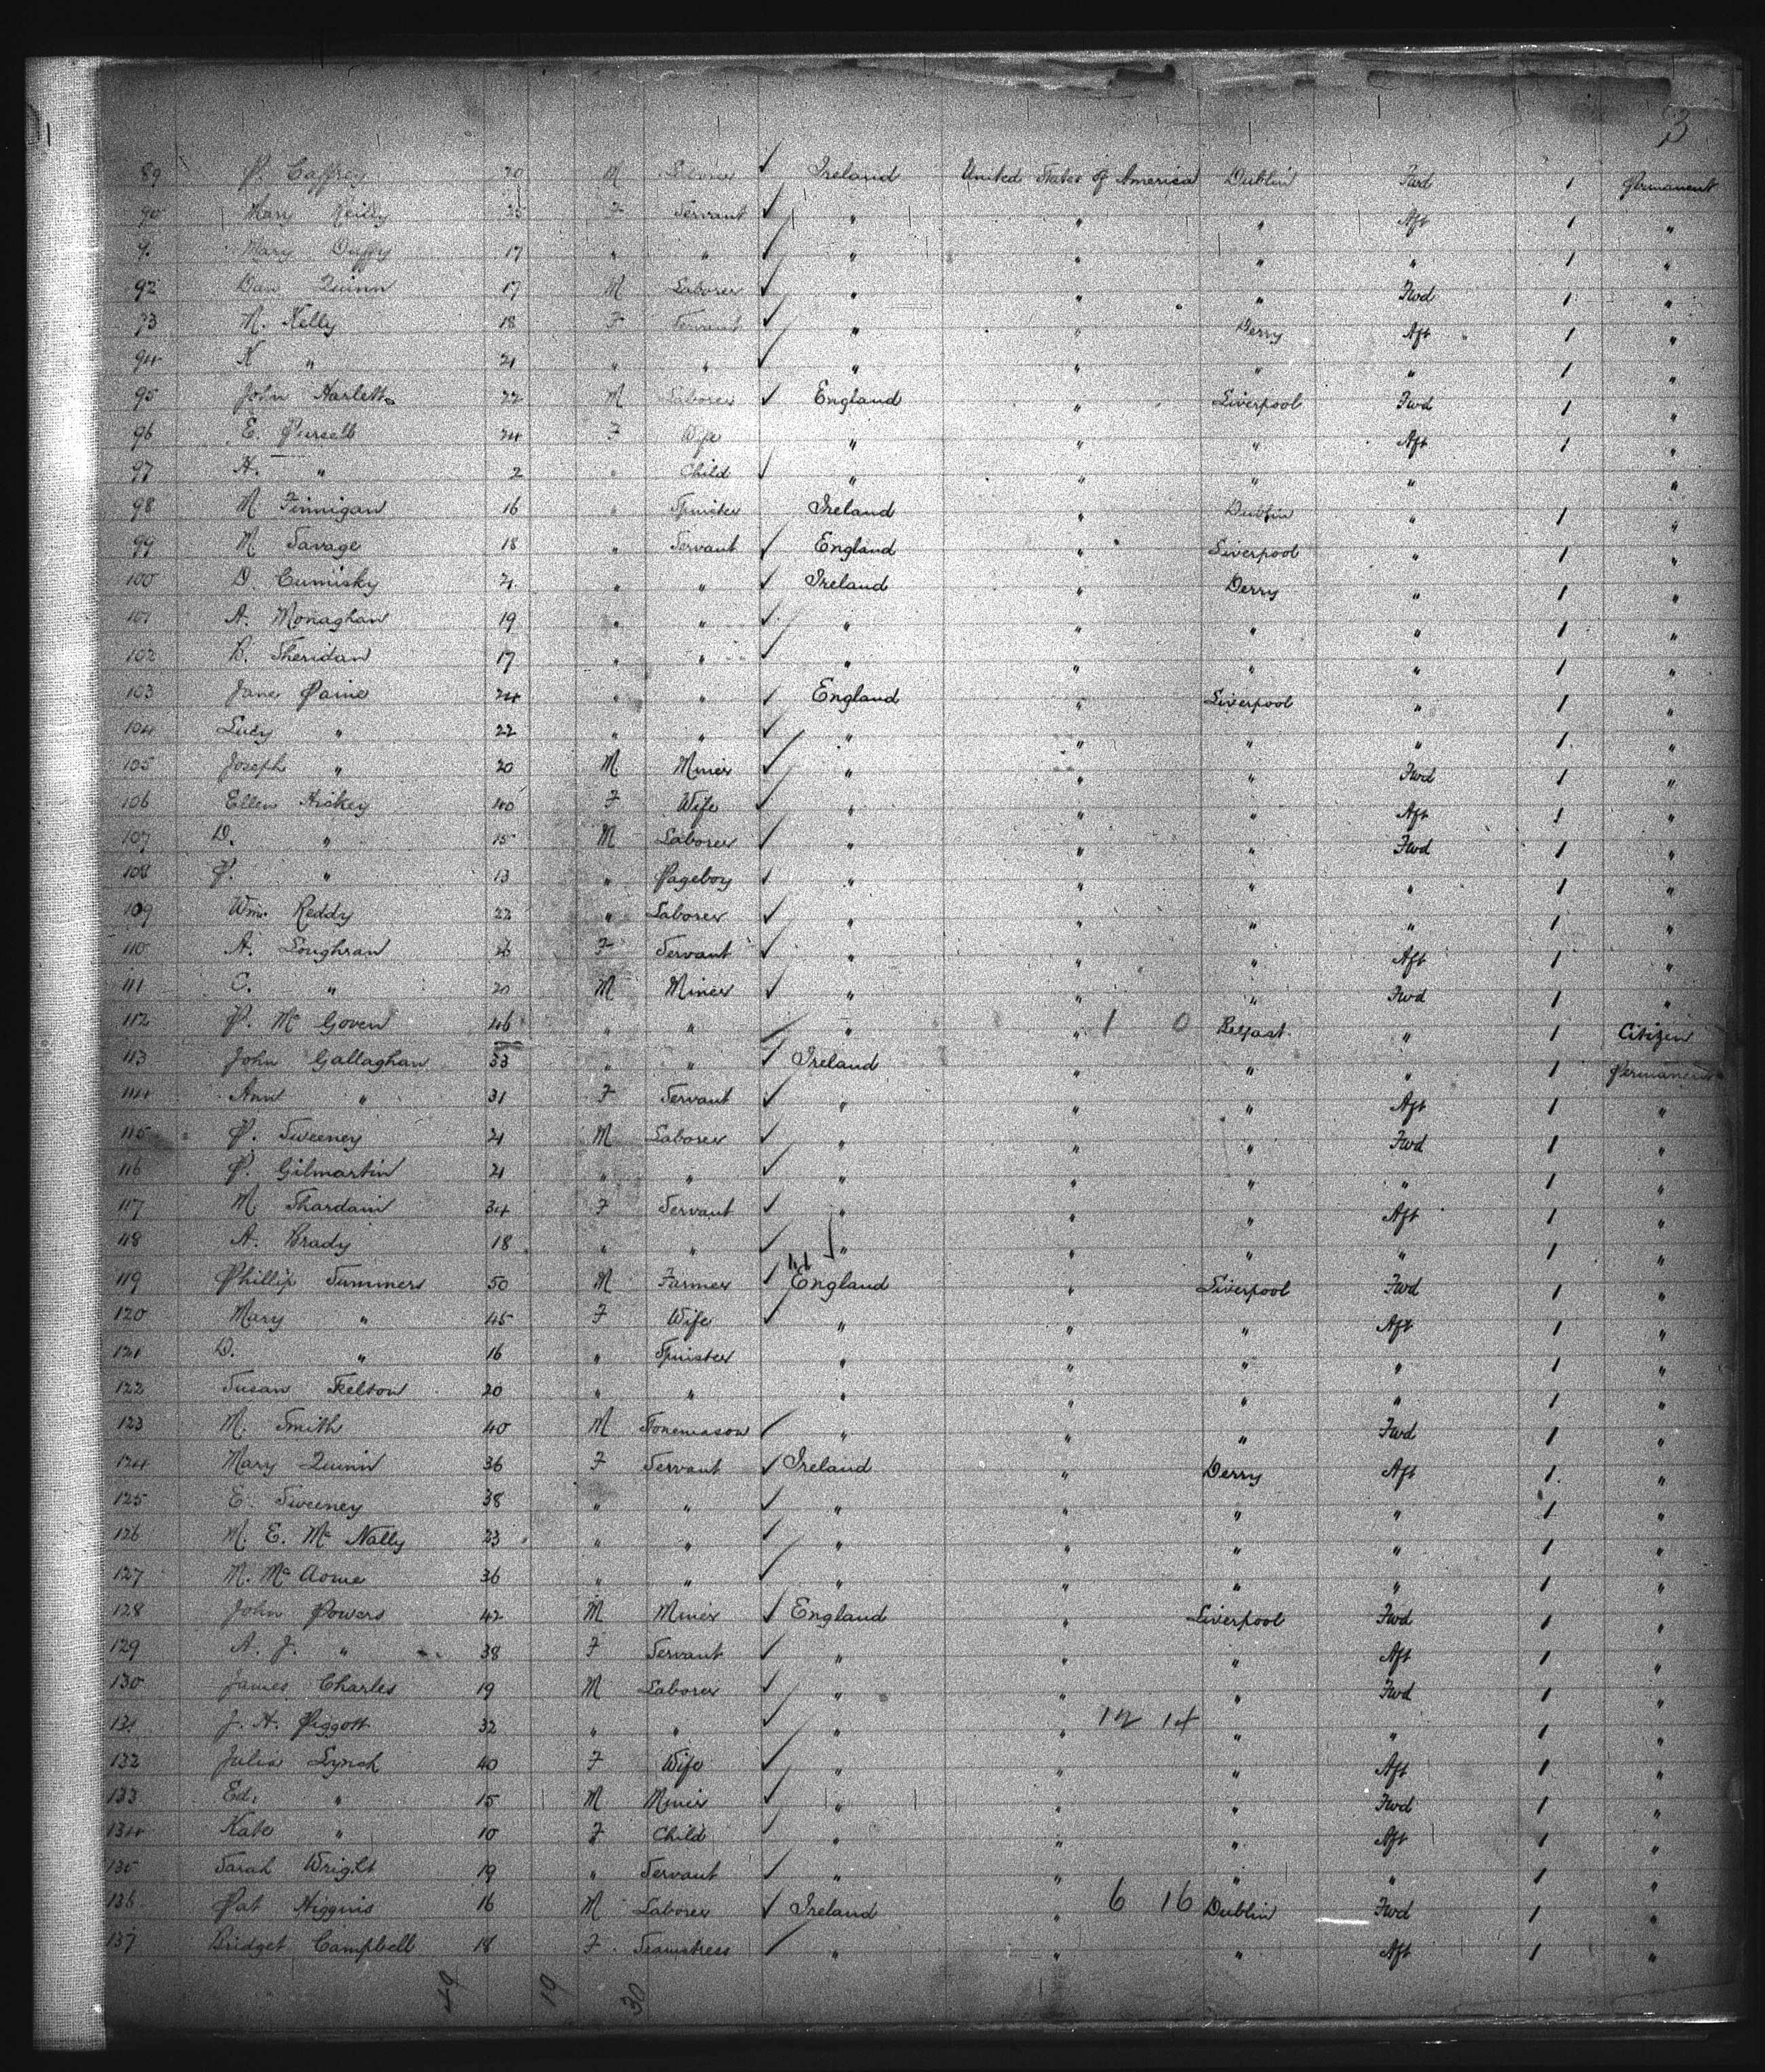 3
89 P. Caffrey 20 M Laborer ✓ Ireland United States of America Dublin Fwd 1 Permanent
90 Mary Reilly 35 F Servant ✓ " " " Aft 1 "
9. Mary Duffy 17 " " ✓ " " " " 1 "
92 Dan Quinn 17 M Laborer ✓ " " " Fwd 1 "
93 M. Kelly 18 F Servant ✓ " " Derry Aft 1 "
94 K " 21 " " ✓ " " " " 1 "
95 John 22 M Laborer ✓ England " Liverpool Fwd 1 "
96 E. Pursell 24 F Wife " " " Aft 1 "
97 H. " 2 " Child ✓ " " " " "
98 M Finnigan 16 " Spinster Ireland " Dublin " 1 "
99 M Savage 18 " Servant ✓ England " Liverpool " 1 "
100 D. Cumisky 21 " " ✓ Ireland " Derry " 1 "
101 A. Monaghan 19 " " ✓ " " " " 1 "
102 B. Sheridan 17 " " ✓ " " " " 1 "
103 Jane Paine 24 " " ✓ England " Liverpool " 1 "
104 Lucy " 22 " " ✓ " " " " 1 "
105 Joseph " 20 M Miner ✓ " " " Fwd 1 "
106 Ellen Hickey 40 F Wife ✓ " " " Aft 1 "
107 D. " 15 M Laborer ✓ " " " Fwd 1 "
108 P. " 13 " Pageboy ✓ " " " " 1 "
109 Wm. Reddy 22 " Laborer ✓ " " " " 1 "
110 A. Loughran F Servant ✓ " " " Aft 1 "
111 C. " 20 M Miner ✓ " " " Fwd 1 "
112 P. Mc Goven 46 " " ✓ " " 1 0 Belfast " 1 Citizen
113 John Gallaghan 33 " " ✓ Ireland " " " 1 Permanent
114 Ann " 31 F Servant ✓ " " " Aft 1 "
115 P. Sweeney 21 M Laborer ✓ " " " Fwd 1 "
116 P. Gilmartin 21 " " ✓ " " " " 1 "
117 M Shardain 34 F Servant ✓ " " " Aft 1 "
118 A. Brady 18 " " ✓ " " " " 1 "
119 Phillip Summers 50 M Farmer ✓ England " Liverpool Fwd 1 "
120 Mary " 45 F Wife ✓ " " " Aft 1 "
121 D. " 16 " Spinster " " " " 1 "
122 Susan Skelton 20 " " " " " " 1 "
123 M. Smith 40 M Stonemason ✓ " " " Fwd 1 "
124 Mary Quinn 36 F Servant ✓ Ireland " Derry Aft 1 "
125 E. Sweeney 38 " " ✓ " " " " 1 "
126 M. E. Mc Nally 23 " " ✓ " " " " 1 "
127 M. Mc 36 " " ✓ " " " " 1 "
128 John Powers 42 M Miner ✓ England " Liverpool Fwd 1 "
129 A. J. " 38 F Servant ✓ " " " Aft 1 "
130 James Charles 19 M Laborer ✓ " " " Fwd 1 "
131 J. H. Piggott 32 " " ✓ " " 12 14 " " 1 "
132 Julia Lynch 40 F Wife ✓ " " " Aft 1 "
133 Ed. " 15 M Miner ✓ " " " Fwd 1 "
134 Kate " 10 F Child ✓ " " " Aft 1 "
135 Sarah Wright 19 " Servant ✓ " " " " 1 "
136 Pat Higgins 16 M Laborer ✓ Ireland " 6 16 Dublin Fwd 1 "
137 Bridget Campbell 18 F Seamstress ✓ " " " Aft 1 "
49 19 30